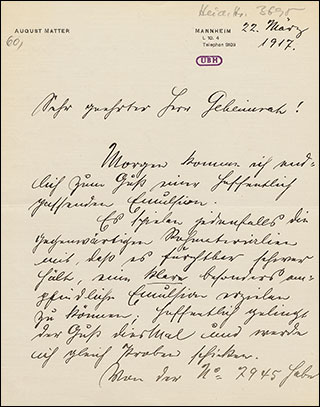 Heid. Hs. 3695
AUGUST MATTER
60,
MANNHEIM
L 10. 4
Telephon 3823
22. März
1917.
UBH
Sehr geehrter Herr Geheimrat!
Morgen komme ich end-
lich zum Guß einer hoffentlich
passenden Emulsion.
Es spielen jedenfalls die
gegenwärtigen Rohmaterialien
mit, daß es furchtbar schwer
hält, eine klare besonders em-
pfindliche Emulsion erzielen
zu können; hoffentlich gelingt
der Guß diesmal und werde
ich gleich Proben schicken.
Von der No= 7945 habe